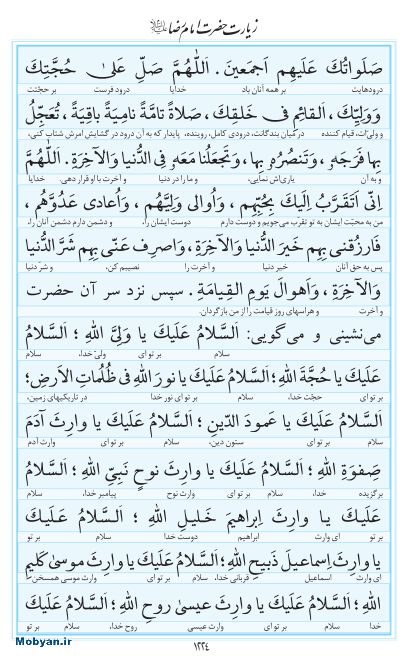 زیارت حضرت امام رضا علیه‌السلام
صَلَواتُكَ عَلَيهِم اَجمَعينَ . اَللّٰهُمَّ صَلِّ عَلىٰ حُجَّتِكَ
درودهایت بر همه آنان باد خدایا درود فرست بر حجّتت
وَوَلِيِّكَ، اَلقائِمِ فى خَلقِكَ، صَلاةً تامَّةً نامِيَةً باقِيَةً ، تُعَجِّلُ
و ولیّ‌ات، قیام کننده در میان بندگانت، درودی کامل، روینده، پایدار که به آن درود در گشایش امرش شتاب کنی،
بِها فَرَجَهُ ، وَتَنصُرُهُ بِها، وَتَجعَلُنا مَعَهُ فِى الدُّنيا وَالآخِرَةِ. اَللّٰهُمَّ
و به آن یاری‌اش نمایی، و ما را در دنیا و آخرت با او قرار دهی. خدایا
اِنّى اَتَقَرَّبُ اِلَيكَ بِحُبِّهِم ، وَاُوالى وَلِيَّهُم ، وَاُعادى عَدُوَّهُم ،
من به محبّت ایشان به تو تقرب می‌جویم و دوست دارم دوست ایشان را، و دشمن دارم دشمن آنان را،
فَارزُقنى بِهِم خَيرَ الدُّنيا وَالآخِرَةِ، وَاصرِف عَنّى بِهِم شَرَّ الدُّنيا
پس به حق آنان خیر دنیا و آخرت را نصیبم کن، و شرّ دنیا
وَالآخِرَةِ ، وَاَهوالَ يَومِ القِيامَةِ . سپس نزد سر آن حضرت
و آخرت و هراسهای روز قیامت را از من بازگردان.
می‌نشینی و می‌گویی: اَلسَّلامُ عَلَيكَ يا وَلِيَّ اللهِ ؛ اَلسَّلامُ
سلام بر تو ای ولیّ خدا، سلام
عَلَيكَ يا حُجَّةَ اللهِ؛ اَلسَّلامُ عَلَيكَ يا نورَ اللهِ فى ظُلُماتِ الاَرضِ؛
بر تو ای حجّت خدا، سلام بر تو ای نور خدا در تاریکیهای زمین،
اَلسَّلامُ عَلَيكَ يا عَمودَ الدّينِ ؛ اَلسَّلامُ عَلَيكَ يا وارِثَ آدَمَ
سلام بر تو ای ستون دین، سلام بر تو ای وارث آدم
صِفوَةِ اللهِ ؛ اَلسَّلامُ عَلَيكَ يا وارِثَ نوحٍ نَبِيِّ اللهِ ؛ اَلسَّلامُ
برگزیده خدا، سلام بر تو ای وارث نوح پیامبر خدا، سلام
عَلَيكَ يا وارِثَ اِبراهيمَ خَليلِ اللهِ ؛ اَلسَّلامُ عَلَيكَ
بر تو ای وارث ابراهیم دوست خدا، سلام بر تو
يا وارِثَ اِسماعيلَ ذَبيحِ اللهِ؛ اَلسَّلامُ عَلَيكَ يا وارِثَ موسىٰ كَليمِ
ای وارث اسماعیل قربانی خدا، سلام بر تو ای وارث موسی همسخن
اللهِ ؛ اَلسَّلامُ عَلَيكَ يا وارِثَ عيسىٰ روحِ اللهِ ؛ اَلسَّلامُ عَلَيكَ
خدا، سلام بر تو ای وارث عیسی روح خدا، سلام بر تو
١٢٢٤
Mobyan.ir